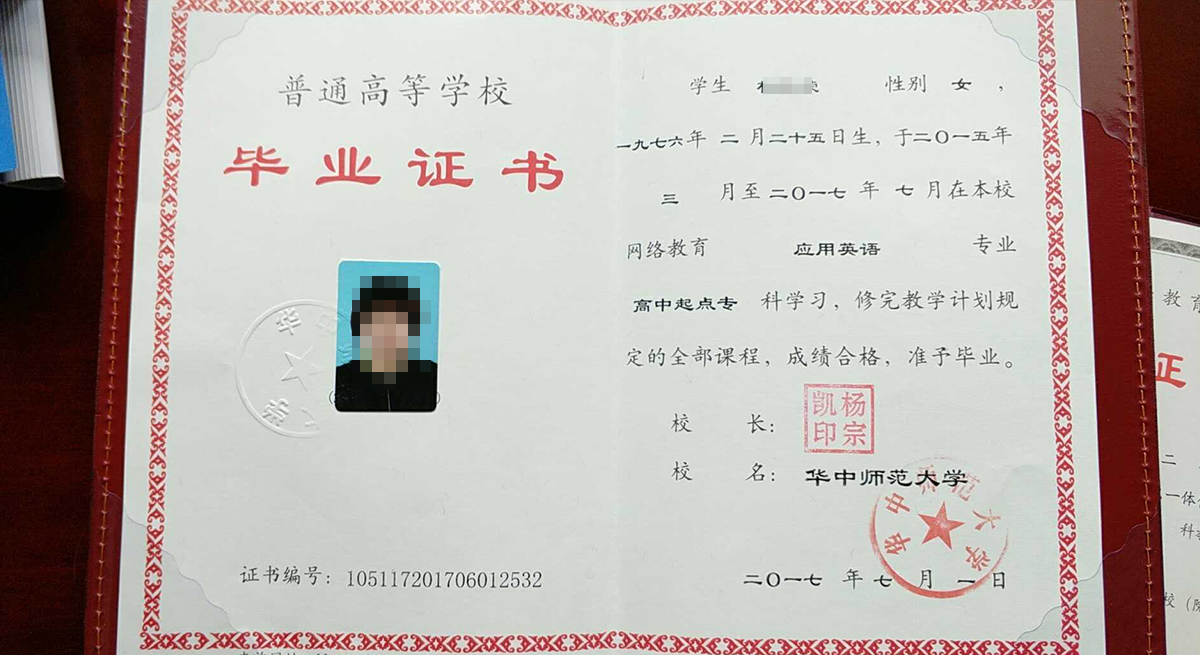 普通高等学校
毕业证书
证书编号：105117201706012532
学生 性别 女，
一九七六年 二 月二十五日生，于二〇一五年
三 月至二〇一七 年 七 月在本校
网络教育 应用英语 专业
高中起点专 科学习，修完教学计划规
定的全部课程，成绩合格，准予毕业。
校 长：
杨宗凯印
校 名：华中师范大学
华中师范大学
二〇一七 年 七 月 一 日
教育
证
二
一体
科
校（院